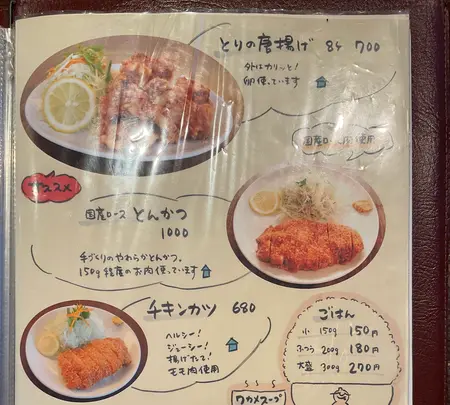 とりの唐揚げ 8ケ 700
外はカリ〜ッと!
卵使っています
国産ロース肉使用
オススメ
国産ロース とんかつ
1000
手づくりのやわらかとんかつ。
150g程度のお肉使っています
チキンカツ 680
ヘルシー!
ジューシー!
揚げたて!
モモ肉使用
ごはん
小 150g 150円
ふつう 200g 180円
大盛 300g 270円
ワカメスープ